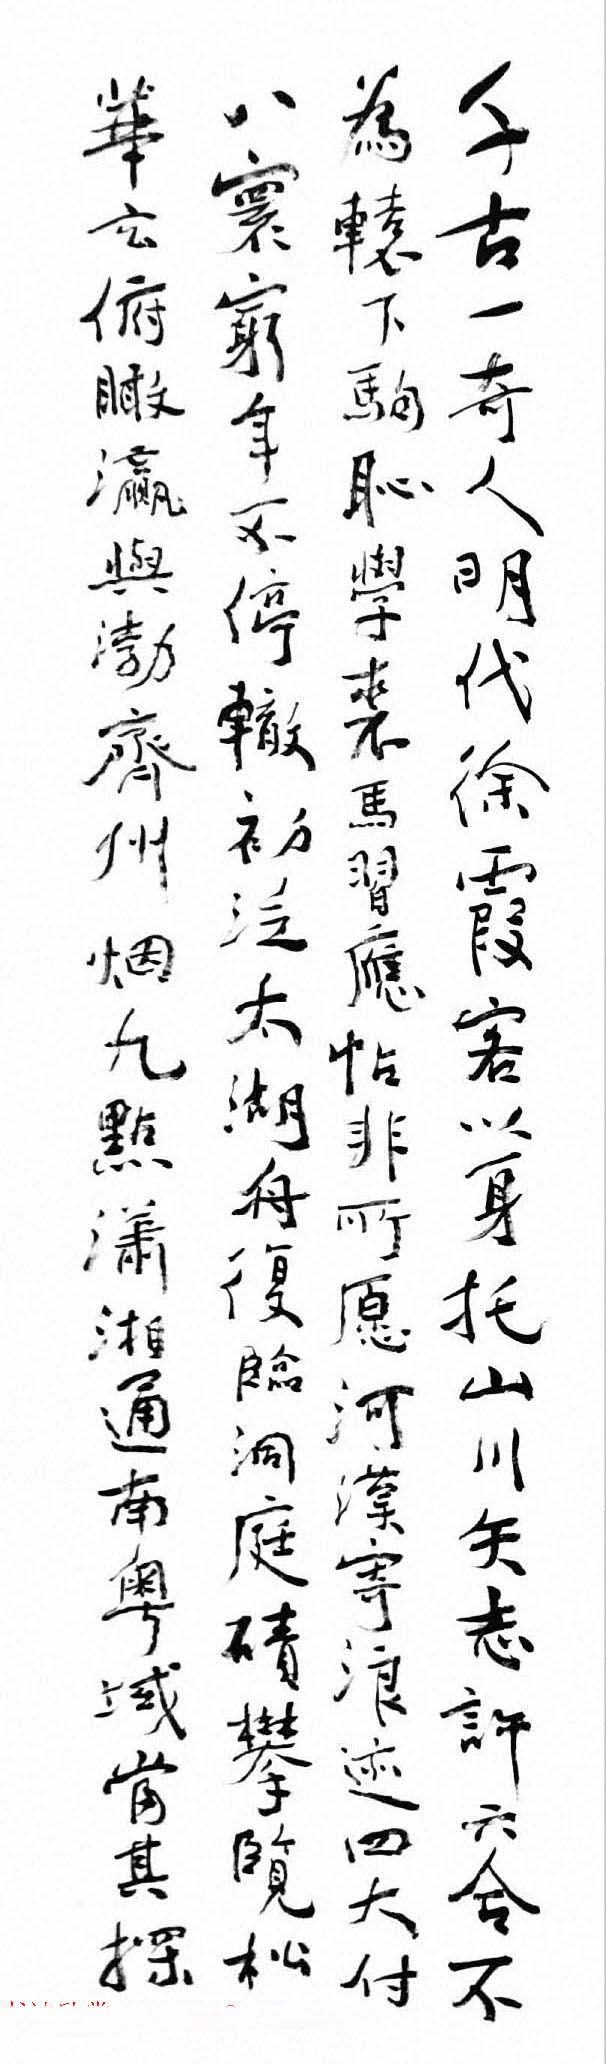 千古一奇人明代徐霞客以身托山川矢志許六合不
為轅下駒恥學裘馬習應帖非所愿河漢寄浪迹四大付
八寰窮年不停轍初泛太湖舟復臨洞庭磧攀覽松
華云俯瞰瀛與渤齊州烟九點瀟湘通南粵域當其探